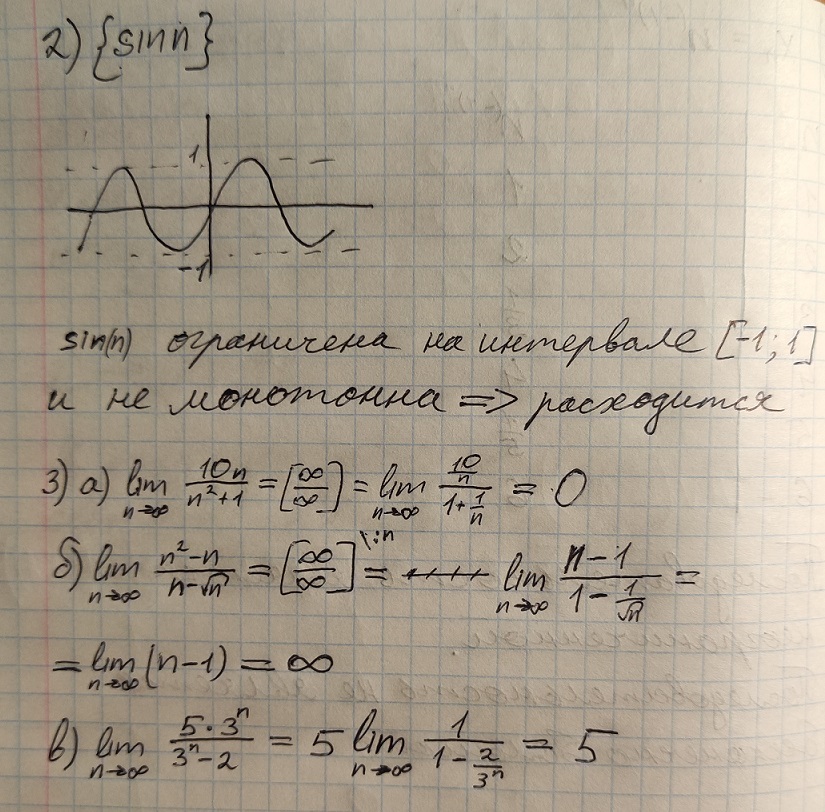 2) {sin n}
1
-1
sin(n) ограничена на интервале [-1; 1]
и не монотонна => расходится
3) а) lim n→∞ 10n/(n²+1) = [∞/∞] = lim n→∞ (10/n)/(1+1/n) = 0
б) lim n→∞ (n²-n)/(n-√n) = [∞/∞] \:n = lim n→∞ (n-1)/(1-1/√n) =
= lim n→∞ (n-1) = ∞
в) lim n→∞ (5·3ⁿ)/(3ⁿ-2) = 5 lim n→∞ 1/(1-2/3ⁿ) = 5